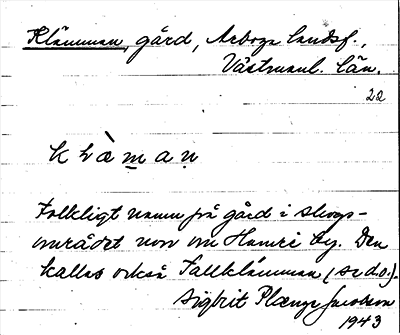 Klämman, gård, Arboga landsf.,
Västmanl. län.
22
k L æ̀ m a n
Folkligt namn på gård i skogs-
området norr om Hamre by. Den
kallas också Fallklämman (se d.o.).
Sigbrit Plænge Jacobson
1943